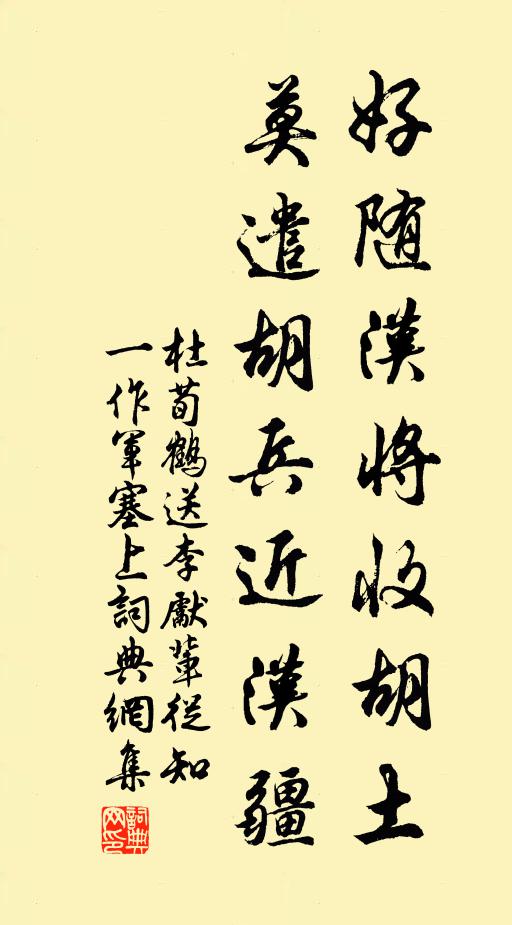 好随漢將收胡土
莫遣胡兵近漢疆
杜荀鶴送李獻輩從知
一作軍塞上詞典網集
詞典网印